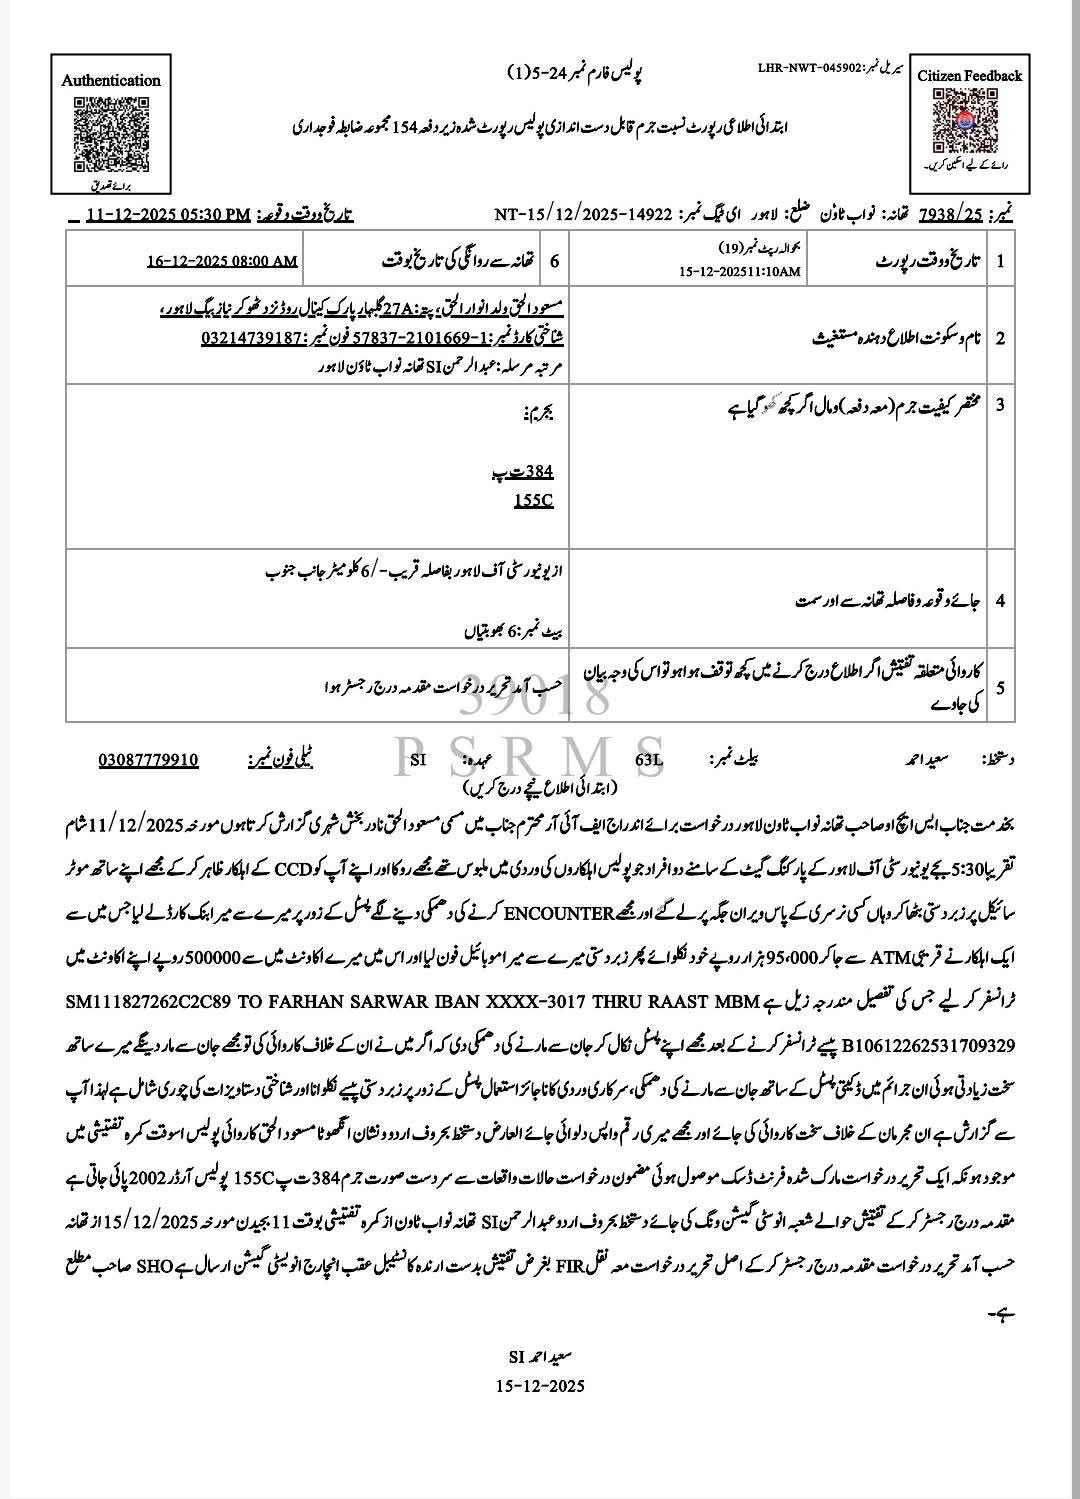 Authentication
برائے تصدیق
پولیس فارم نمبر 24-5(1)
سیریل نمبر: LHR-NWT-045902
Citizen Feedback
رائے کے لیے اسکین کریں۔
ابتدائی اطلاعی رپورٹ نسبت جرم قابل دست اندازی پولیس رپورٹ شدہ زیر دفعہ 154 مجموعہ ضابطہ فوجداری
نمبر: 7938/25 تھانہ: نواب ٹاؤن ضلع: لاہور ای ٹیگ نمبر: NT-15/12/2025-14922 تاریخ و وقت وقوعہ: 11-12-2025 05:30 PM
1 تاریخ و وقت رپورٹ
بحوالہ رپٹ نمبر (19)
15-12-202511:10AM
6 تھانہ سے روانگی کی تاریخ بوقت 16-12-2025 08:00 AM
2 نام و سکونت اطلاع دہندہ مستغیث
مسعود الحق ولد انوار الحق، پتہ: 27A گلبہار پارک کینال روڈ نزد ٹھوکر نیاز بیگ لاہور،
شناختی کارڈ نمبر: 57837-2101669-1 فون نمبر: 03214739187
مرتبہ مرسلہ: عبدالرحمن SI تھانہ نواب ٹاؤن لاہور
3 مختصر کیفیت جرم (معہ دفعہ) و مال اگر کچھ کھو گیا ہے
بجرم:
384 ت پ
155C
4 جائے وقوعہ و فاصلہ تھانہ سے اور سمت
از یونیورسٹی آف لاہور بفاصلہ قریب -/6 کلو میٹر جانب جنوب
بیٹ نمبر: 6 بھوبتیاں
5 کاروائی متعلقہ تفتیش اگر اطلاع درج کرنے میں کچھ توقف ہوا ہو تو اس کی وجہ بیان
کی جاوے
حسب آمد تحریر درخواست مقدمہ درج رجسٹر ہوا
39018
PSRMS
دستخط: سعید احمد بیلٹ نمبر: 63L عہدہ: SI ٹیلی فون نمبر: 03087779910
(ابتدائی اطلاع نیچے درج کریں)
بخدمت جناب ایس ایچ او صاحب تھانہ نواب ٹاون لاہور درخواست برائے اندراج ایف آئی آر محترم جناب میں مسمی مسعود الحق نادر بخش شہری گزارش کرتا ہوں مورخہ 11/12/2025 شام
تقریبا 5:30 بجے یونیورسٹی آف لاہور کے پارکنگ گیٹ کے سامنے دو افراد جو پولیس اہلکاروں کی وردی میں ملبوس تھے مجھے روکا اور اپنے آپ کو CCD کے اہلکار ظاہر کر کے مجھے اپنے ساتھ موٹر
سائیکل پر زبردستی بٹھا کر وہاں کسی نرسری کے پاس ویران جگہ پر لے گئے اور مجھے ENCOUNTER کرنے کی دھمکی دینے لگے پسٹل کے زور پر میرے سے میرا بنک کارڈ لے لیا جس میں سے
ایک اہلکار نے قریبی ATM سے جا کر 95،000 ہزار روپے خود نکلوائے پھر زبردستی میرے سے میرا موبائیل فون لیا اور اس میں میرے اکاونٹ میں سے 500000 روپے اپنے اکاونٹ میں
ٹرانسفر کر لیے جس کی تفصیل مندرجہ زیل ہے SM111827262C2C89 TO FARHAN SARWAR IBAN XXXX-3017 THRU RAAST MBM
B10612262531709329 پیسے ٹرانسفر کرنے کے بعد مجھے اپنے پسٹل نکال کر جان سے مارنے کی دھمکی دی کہ اگر میں نے ان کے خلاف کاروائی کی تو مجھے جان سے مار دینگے میرے ساتھ
سخت زیادتی ہوئی ان جرائم میں ڈکیتی پسٹل کے ساتھ جان سے مارنے کی دھمکی، سرکاری وردی کا ناجائز استعمال پسٹل کے زور پر زبردستی پیسے نکلوانا اور شناختی دستاویزات کی چوری شامل ہے لہذا آپ
سے گزارش ہے ان مجرمان کے خلاف سخت کاروائی کی جائے اور مجھے میری رقم واپس دلوائی جائے العارض دستخط بحروف اردو و نشان انگھوٹا مسعود الحق کاروائی پولیس اسوقت کمرہ تفتیشی میں
موجود ہوں کہ ایک تحریر درخواست مارک شدہ فرنٹ ڈسک موصول ہوئی مضمون درخواست حالات واقعات سے سردست صورت جرم 384 ت پ 155C پولیس آرڈر 2002 پائی جاتی ہے
مقدمہ درج رجسٹر کر کے تفتیش حوالے شعبہ انوسٹی گیشن ونگ کی جائے دستخط بحروف اردو عبدالرحمن SI تھانہ نواب ٹاون از کمرہ تفتیشی بوقت 11 بجے دن مورخہ 15/12/2025 از تھانہ
حسب آمد تحریر درخواست مقدمہ درج رجسٹر کر کے اصل تحریر درخواست معہ نقل FIR بغرض تفتیش بدست ارندہ کانسٹیبل عقب انچارج انویسٹی گیشن ارسال ہے SHO صاحب مطلع
ہے۔
سعید احمد SI
15-12-2025